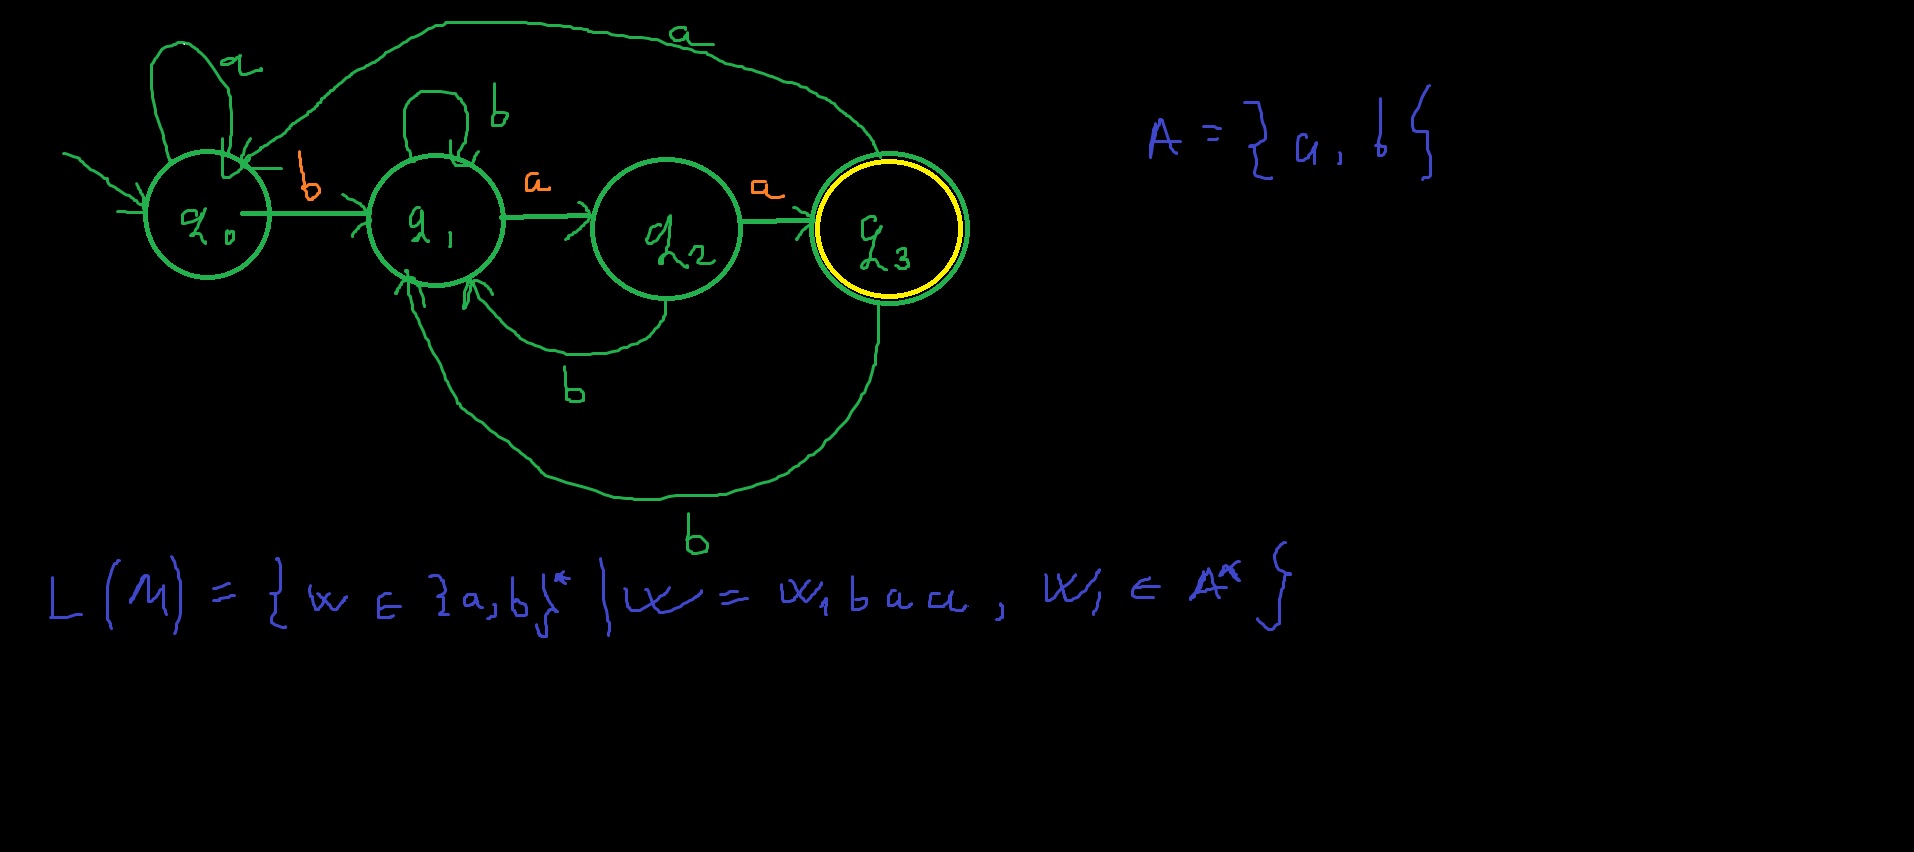 a
a
b
b
a
a
q0
q1
q2
q3
b
b
A = }a, b{
L(M) = {w ∈ }a,b}* | w = w1 b a a , w1 ∈ A*}